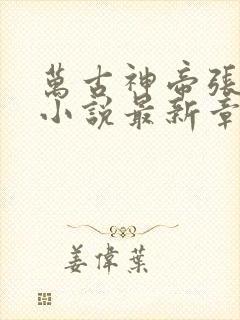 萬古神帝張
小說最新章
姜偉葉